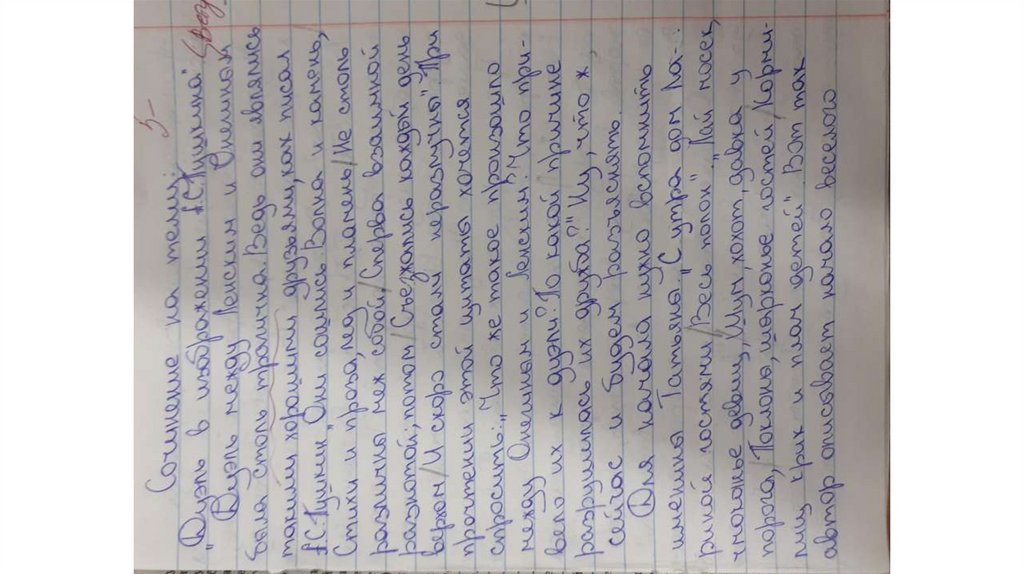 5-
Сочинение на тему:
"Дуэль в изображении А.С.Пушкина"
Дуэль между Ленским и Онегиным
была столь трагична. Ведь они являлись
такими хорошими друзьями, как писал
А.С.Пушкин „Они сошлись. Волна и камень,
Стихи и проза, лед и пламень/Не столь
различны меж собой/Сперва взаимной
разнотой; потом/Съезжались каждый день
верхом/И скоро стали неразлучны". При
прочтении этой цитаты хочется
спросить: „Что же такое произошло
между Онегиным и Ленским? Что при-
вело их к дуэли? По какой причине
разрушилась их дружба?" Ну, что ж
сейчас и будем разъяснять.
Для начала нужно вспомнить
именины Татьяны. „С утра дом Ла-
риной гостями/Весь полон". „Лай мосек,
чмоконье девиц,/Шум, хохот, давка у
порога,/Поклоны, шарканье гостей,/Корми-
лиц крик и плач детей". Вот так
автор описывает начало веселого